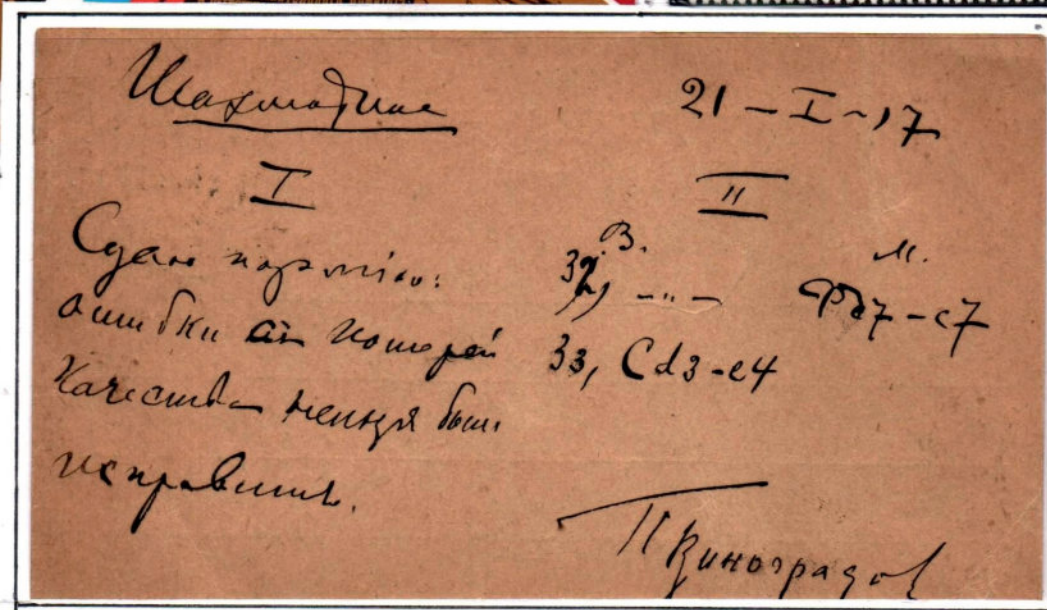 Шахматная
21-I-17
I
Сдаю партію:
ошибки съ потерей
качества нельзя было
исправить.
II
В. М.
32, -"- Фd7-c7
33, Cd3-e4
П Виноградов